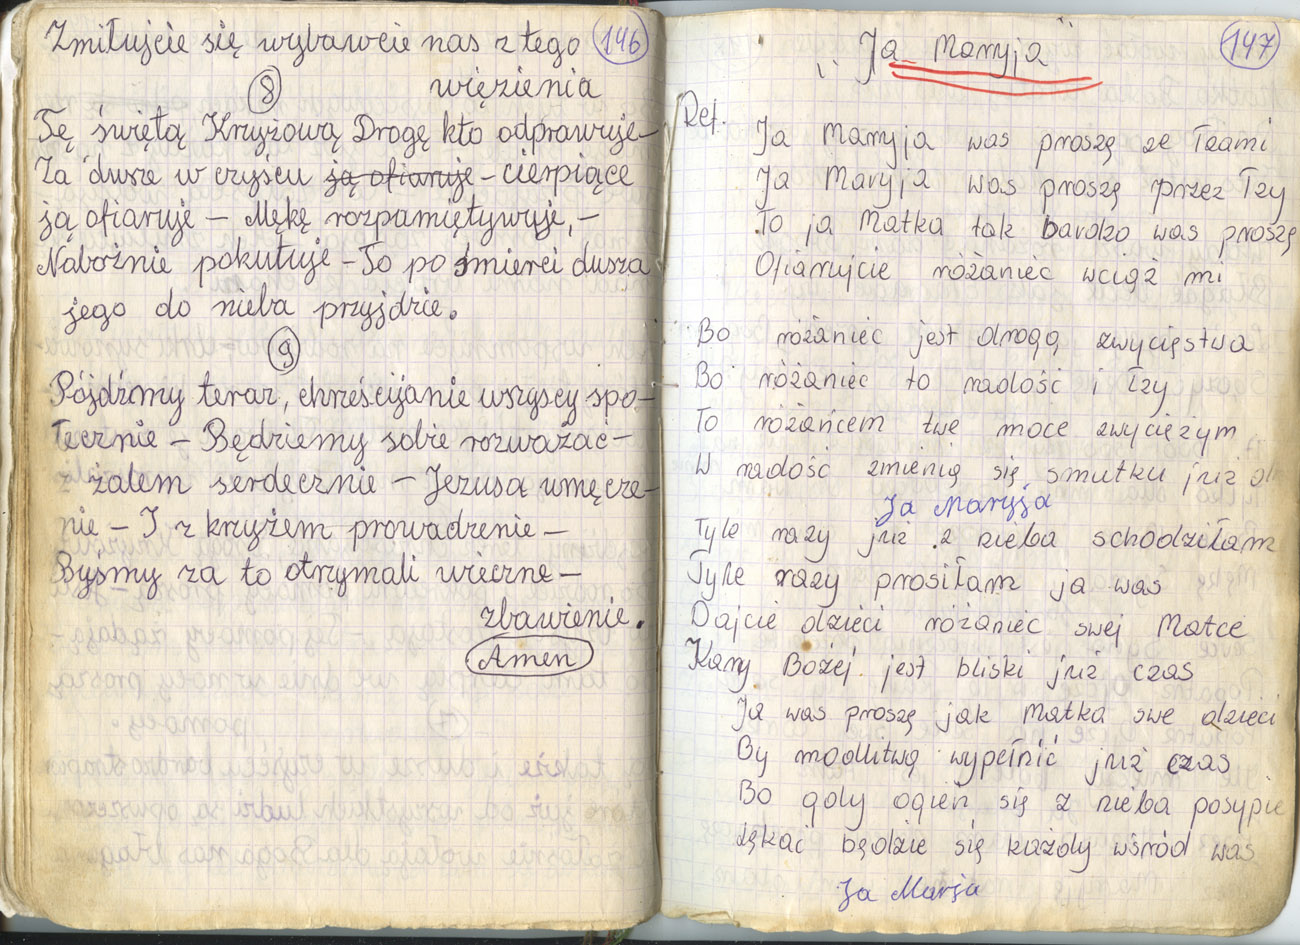 Zmiłujcie się wybawcie nas z tego
146
więzienia
8
Tę świętą Krzyżową Drogę kto odprawuje—
Za dusze w czyścu ją ofiaruje — cierpiące
ją ofiaruje — Mękę rozpamiętywuje, —
Nabożnie pokutuje — To po śmierci dusza
jego do nieba przyjdzie.
9
Pójdźmy teraz, chrześcijanie wszyscy spo—
łecznie — Będziemy sobie rozważać —
żalem serdecznie — Jezusa umęcze—
nie — I z krzyżem prowadzenie —
Byśmy za to otrzymali wieczne —
zbawienie.
Amen
147
"Ja Maryja"
Ref.
Ja Maryja was proszę ze łzami
Ja Maryja was proszę przez łzy
To ja Matka tak bardzo was proszę
Ofiarujcie różaniec wciąż mi
Bo różaniec jest drogą zwycięstwa
Bo różaniec to radość i łzy
To różańcem twe moce zwyciężym
W radość zmienią się smutku już
Ja Maryja
Tyle razy już z nieba schodziłam
Tyle razy prosiłam ja was
Dajcie dzieci różaniec swej Matce
Kary Bożej jest bliski już czas
Ja was proszę jak Matka swe dzieci
By modlitwą wypełnić już czas
Bo gdy ogień się z nieba posypie
Lękać będzie się każdy wśród was
Ja Marja